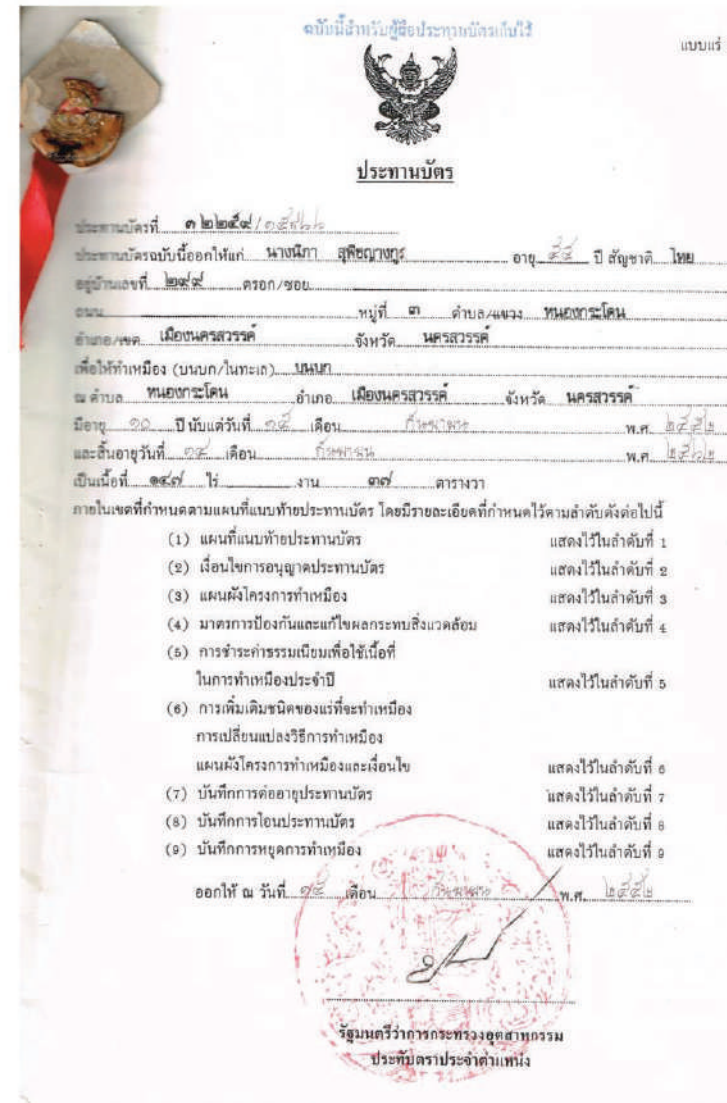 ฉบับนี้สำหรับผู้ถือประทานบัตรเก็บไว้
แบบแร่
ประทานบัตร
ประทานบัตรที่ ๓๒๒๕๙/๑๕๙๖๖
ประทานบัตรฉบับนี้ออกให้แก่ นางนิภา สุพิชญางกูร อายุ ๕๕ ปี สัญชาติ ไทย
อยู่บ้านเลขที่ ๒๙๙ ตรอก/ซอย
ถนน หมู่ที่ ๓ ตำบล/แขวง หนองกระโดน
อำเภอ/เขต เมืองนครสวรรค์ จังหวัด นครสวรรค์
เพื่อให้ทำเหมือง (บนบก/ในทะเล) บนบก
ณ ตำบล หนองกระโดน อำเภอ เมืองนครสวรรค์ จังหวัด นครสวรรค์
มีอายุ ๑๐ ปี นับแต่วันที่ ๑๕ เดือน กันยายน พ.ศ. ๒๕๕๒
และสิ้นอายุวันที่ ๑๔ เดือน กันยายน พ.ศ. ๒๕๖๒
เป็นเนื้อที่ ๑๔๗ ไร่ งาน ๓๗ ตารางวา
ภายในเขตที่กำหนดตามแผนที่แนบท้ายประทานบัตร โดยมีรายละเอียดที่กำหนดไว้ตามลำดับดังต่อไปนี้
(1) แผนที่แนบท้ายประทานบัตร แสดงไว้ในลำดับที่ 1
(2) เงื่อนไขการอนุญาตประทานบัตร แสดงไว้ในลำดับที่ 2
(3) แผนผังโครงการทำเหมือง แสดงไว้ในลำดับที่ 3
(4) มาตรการป้องกันและแก้ไขผลกระทบสิ่งแวดล้อม แสดงไว้ในลำดับที่ 4
(5) การชำระค่าธรรมเนียมเพื่อใช้เนื้อที่
ในการทำเหมืองประจำปี แสดงไว้ในลำดับที่ 5
(6) การเพิ่มเติมชนิดของแร่ที่จะทำเหมือง
การเปลี่ยนแปลงวิธีการทำเหมือง
แผนผังโครงการทำเหมืองและเงื่อนไข แสดงไว้ในลำดับที่ 6
(7) บันทึกการต่ออายุประทานบัตร แสดงไว้ในลำดับที่ 7
(8) บันทึกการโอนประทานบัตร แสดงไว้ในลำดับที่ 8
(9) บันทึกการหยุดการทำเหมือง แสดงไว้ในลำดับที่ 9
ออกให้ ณ วันที่ ๑๕ เดือน กันยายน พ.ศ. ๒๕๕๒
รัฐมนตรีว่าการกระทรวงอุตสาหกรรม
ประทับตราประจำตำแหน่ง